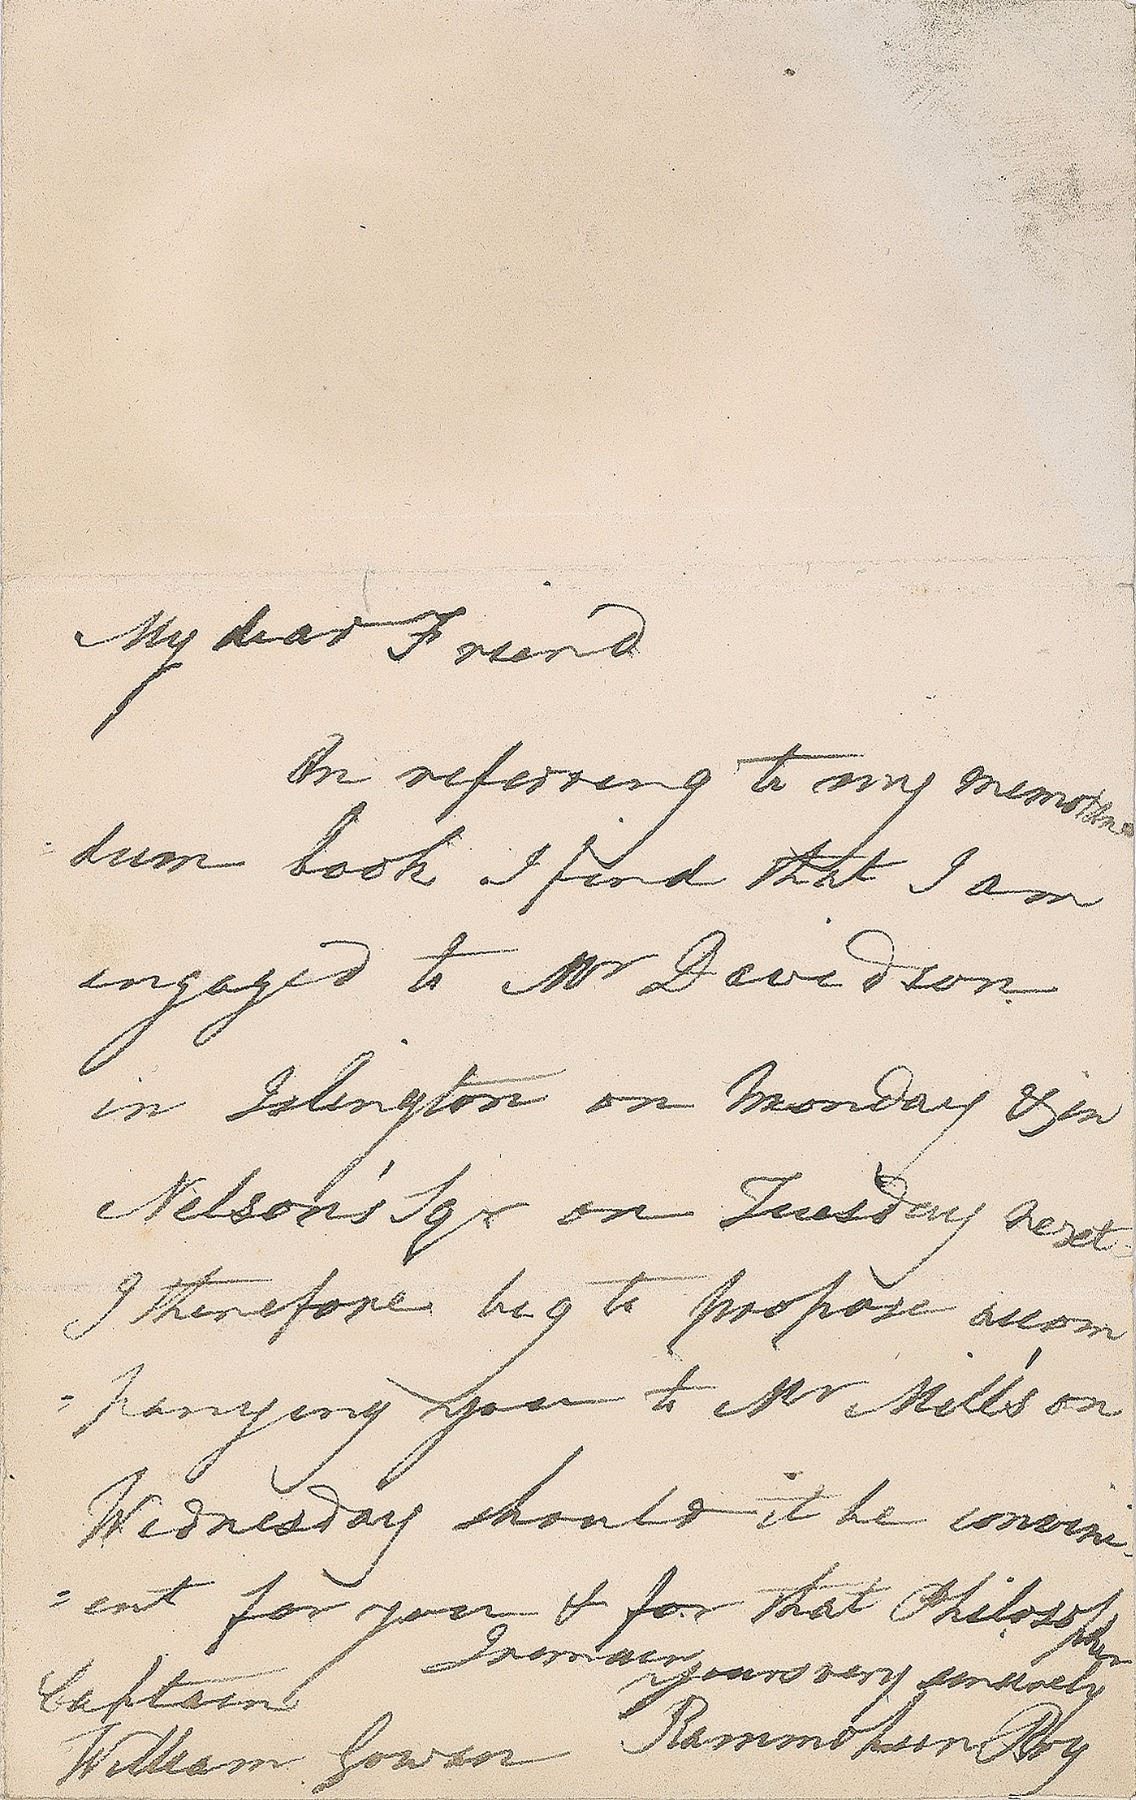 My dear Friend
On referring to my memoran
dum book I find that I am
engaged to Mr Davidson
in Islington on Monday & in
Nelson's Sqr on Tuesday next
I therefore beg to propose accom
=panying you to Mr Mill's on
Wednesday should it be conveni-
=ent for you & for that Philosopher
I remain
yours very sincerely
Captain
William Gowan
Rammohun Roy